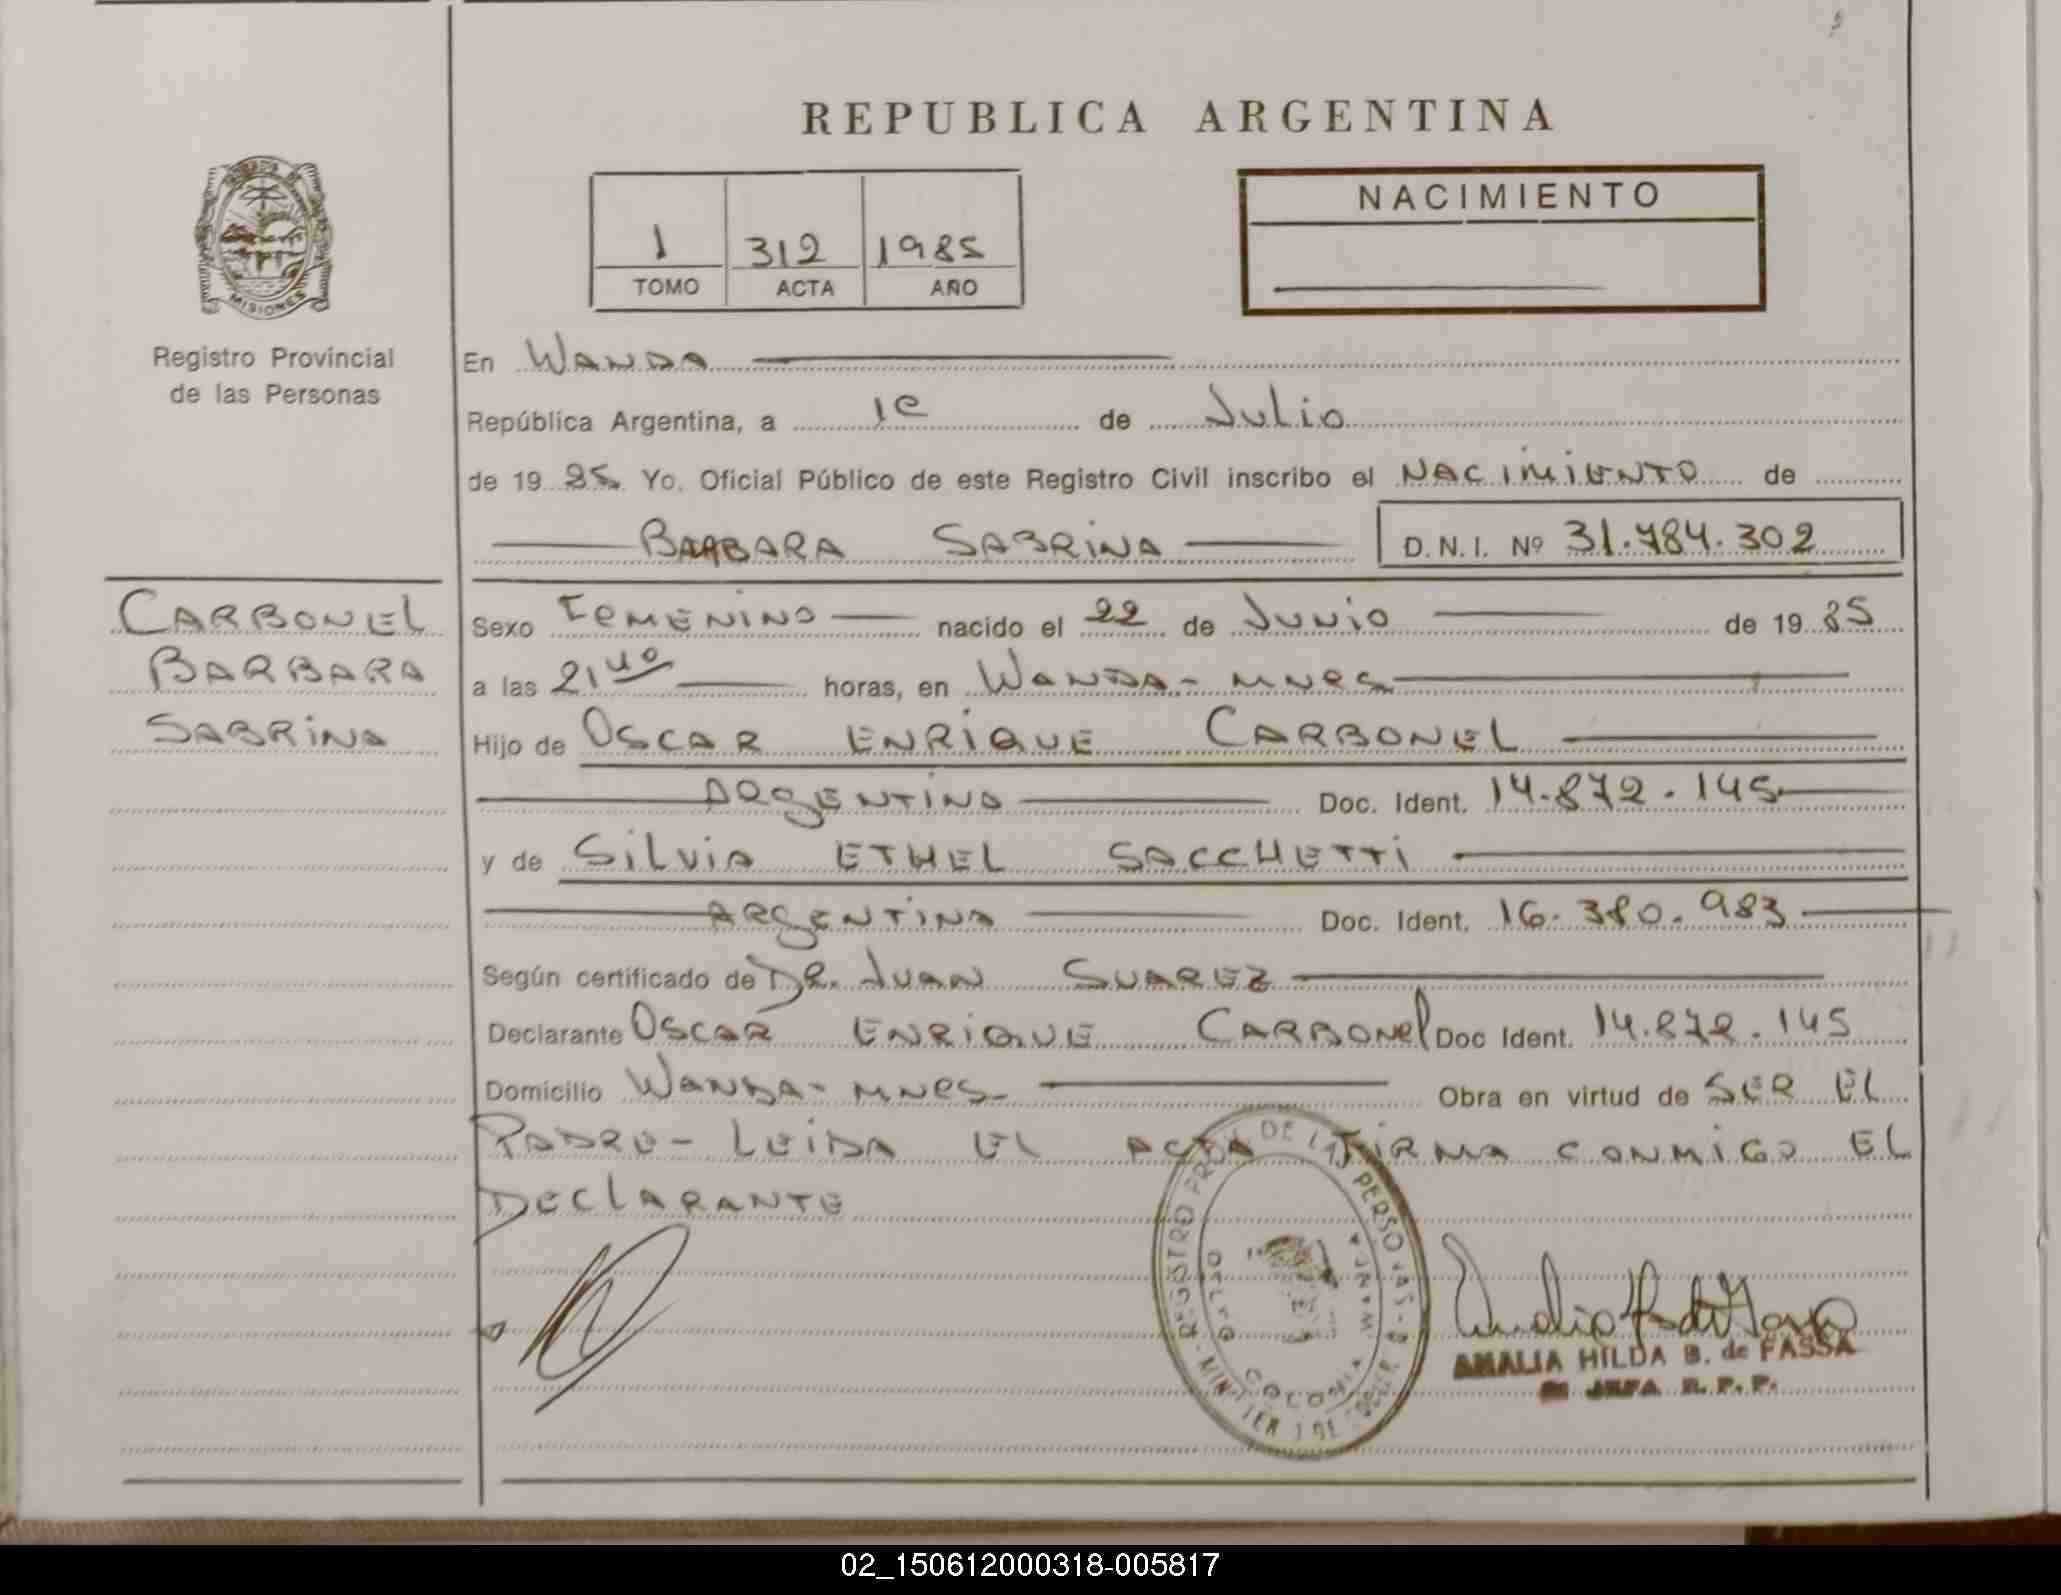 REPUBLICA ARGENTINA
NACIMIENTO
1 312 1985
TOMO ACTA AÑO
MISIONES
Registro Provincial
de las Personas
En Wanda
República Argentina, a 1º de Julio
de 1985 Yo, Oficial Público de este Registro Civil inscribo el NACIMIENTO de
BARBARA SABRINA D.N.I. Nº 31.784.302
CARBONEL
BARBARA
SABRINA
Sexo FEMENINO nacido el 22 de Junio de 1985
a las 21 40 horas, en Wanda - mnes
Hijo de OSCAR ENRIQUE CARBONEL
ARgENTINO Doc. Ident. 14.872.145
y de SILVIA ETHEL SACCHETTI
ARgENTINA Doc. Ident. 16.380.983
Según certificado de DR. JUAN SUAREZ
Declarante OSCAR ENRIQUE CARBONEL Doc Ident. 14.872.145
Domicilio Wanda - mnes - Obra en virtud de SER EL
PADRE - LEIDA EL ACTA FIRMA CONMIGO EL
DECLARANTE
REGISTRO DE LAS PERSONAS
COLONIA WANDA
AMALIA HILDA B. de FASSA
JEFA R. P. P.
02_150612000318-005817